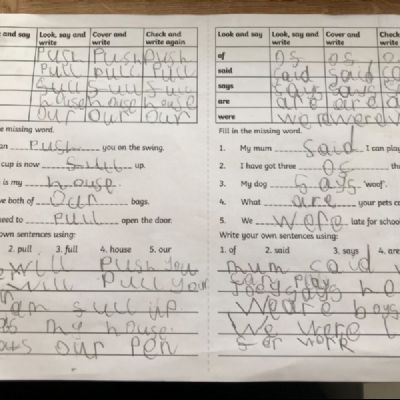 and say Look, say and write Cover and write Check and write again
push push push
pull pull pull
full full full
house house house
our our our
missing word.
an push you on the swing.
cup is now full up.
is my house.
e both of our bags.
eed to pull open the door.
own sentences using:
2. pull 3. full 4. house 5. our
will push you
will pull your
am sull up
my house.
our pen
Look and say Look, say and write Cover and write Check write
of os os
said said said
says says says
are are are a
were were were w
Fill in the missing word.
1. My mum said I can play
2. I have got three os the
3. My dog says 'woof'.
4. What are your pets ca
5. We were late for school
Write your own sentences using:
1. of 2. said 3. says 4. are
mum said
can play
says
We are boys
We were
for work